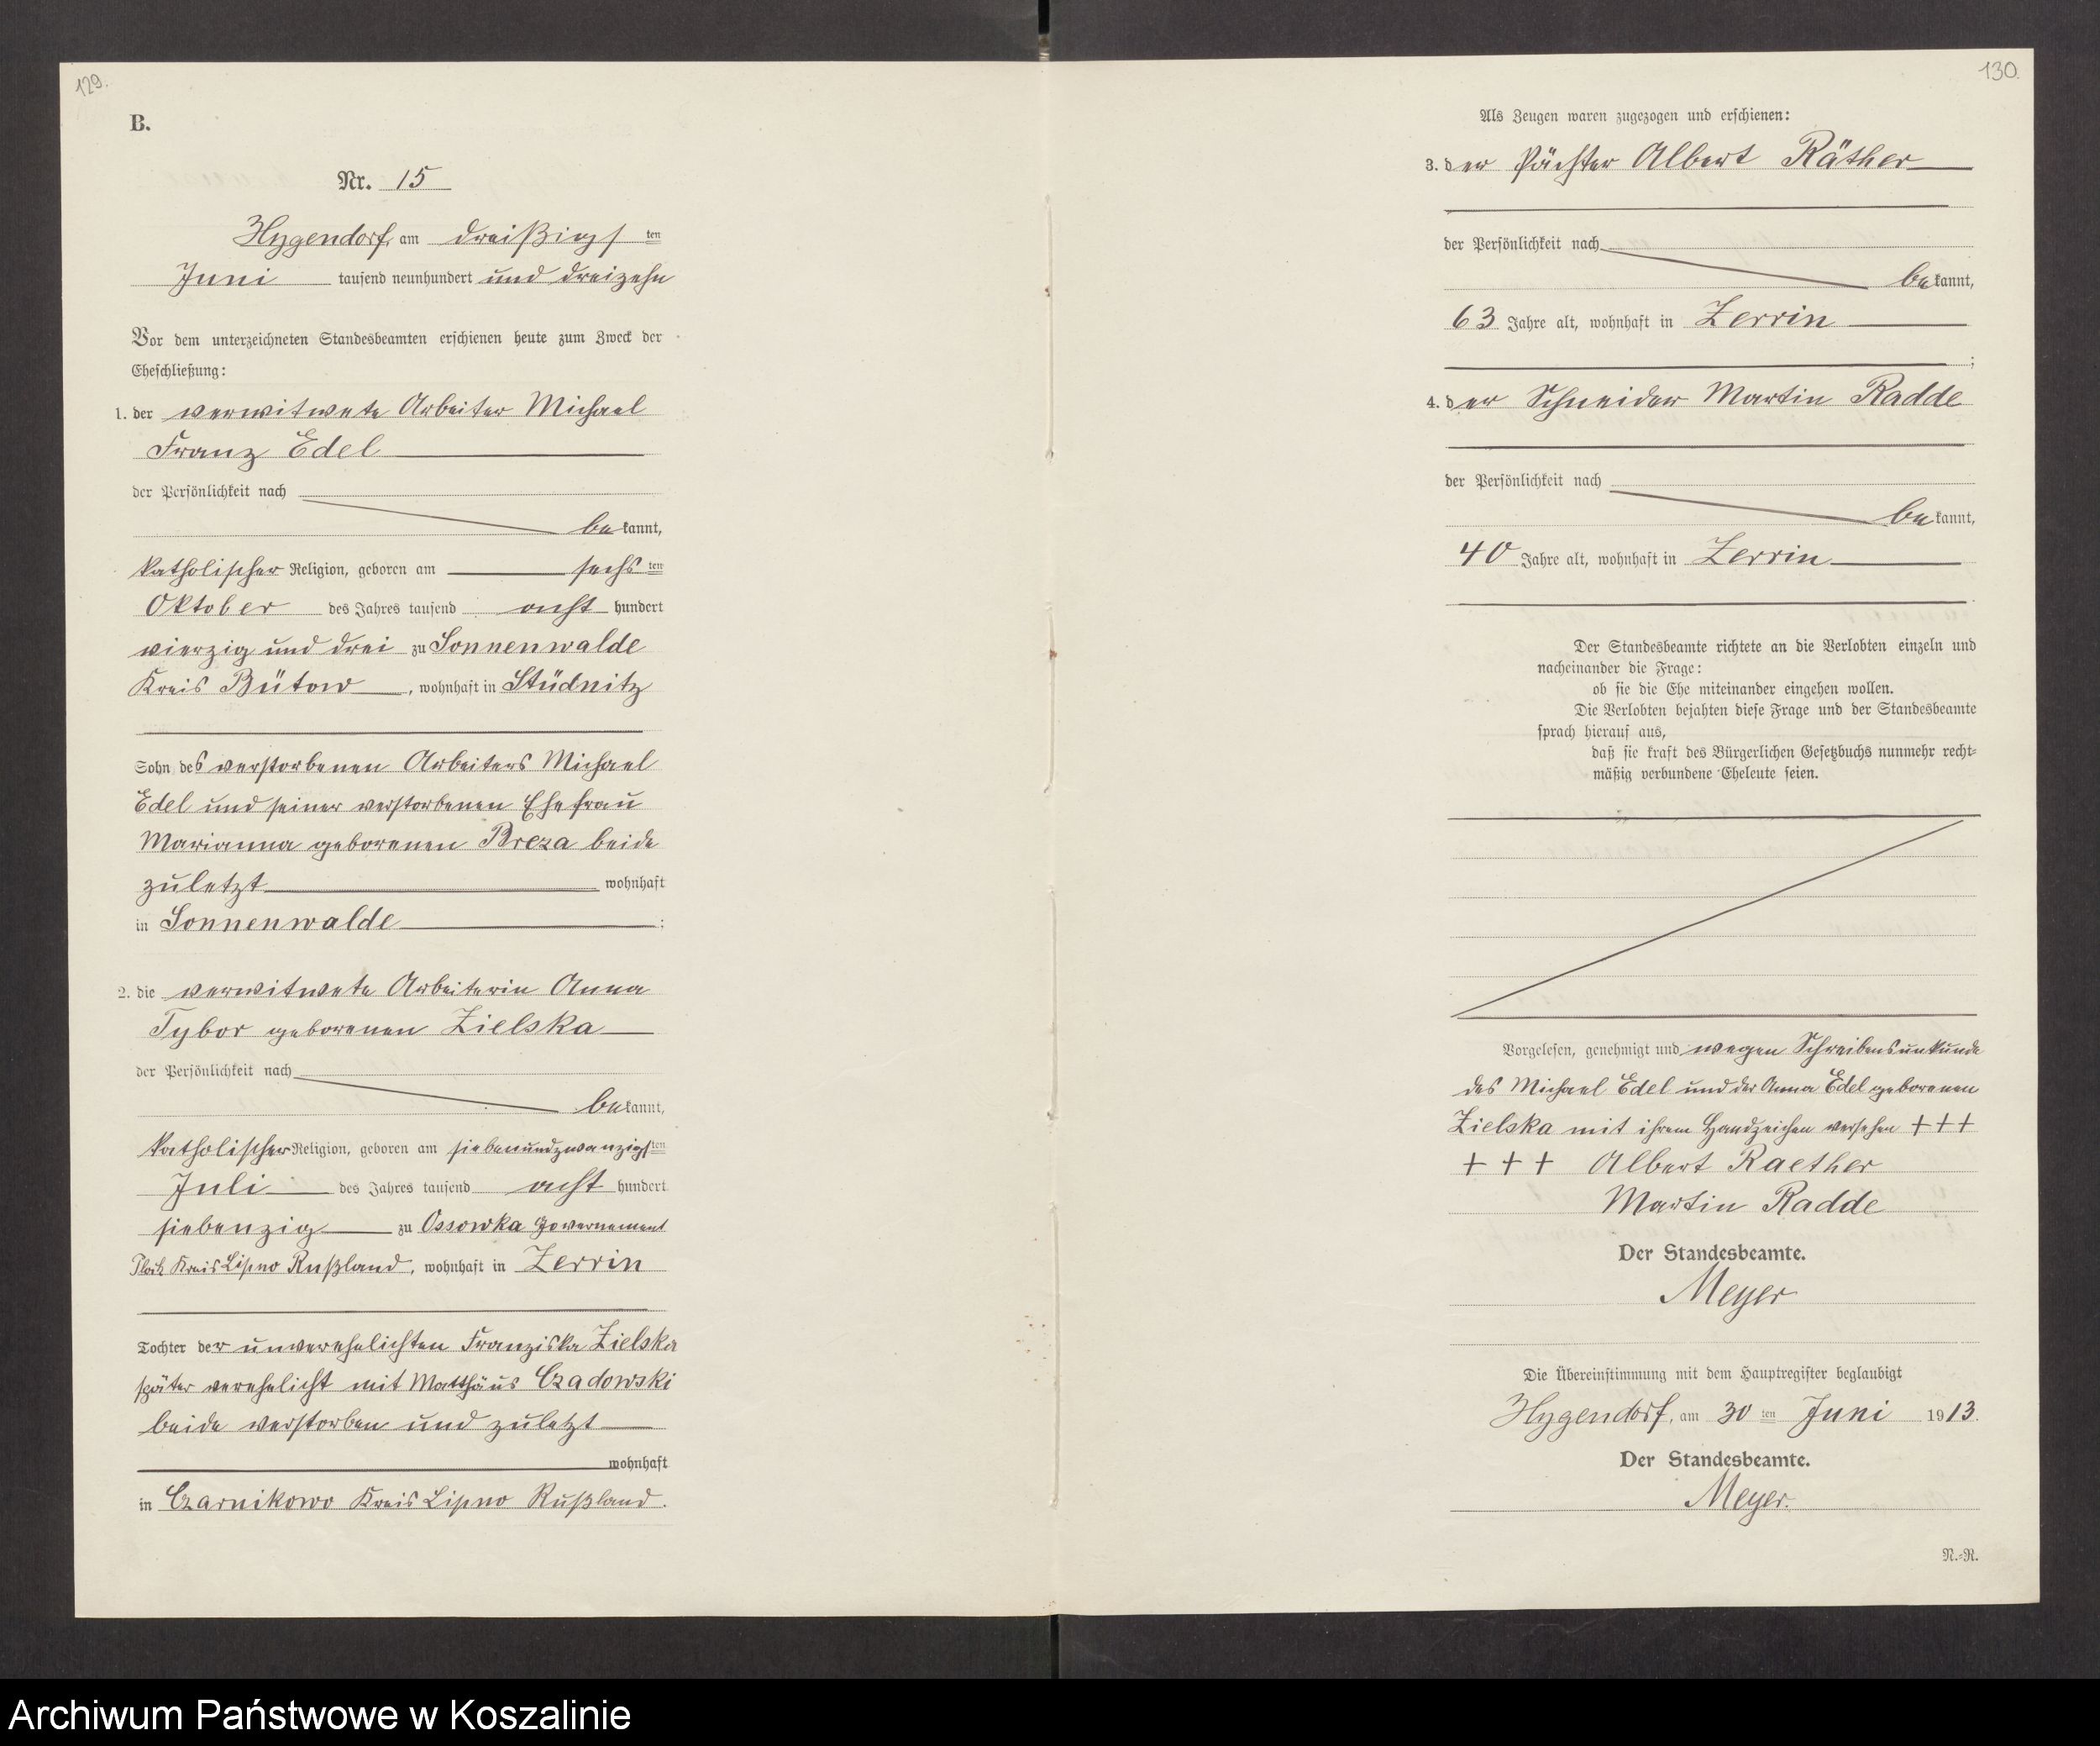 129.
B.
Nr. 15
Hygendorf, am dreißigsten
Juni tausend neunhundert und dreizehn
Vor dem unterzeichneten Standesbeamten erschienen heute zum Zweck der
Eheschließung:
1. der verwitwete Arbeiter Michael
Franz Edel
der Persönlichkeit nach
bekannt,
katholischer Religion, geboren am sechsten
Oktober des Jahres tausend acht hundert
vierzig und drei zu Sonnenwalde
Kreis Bütow, wohnhaft in Stüdnitz
Sohn des verstorbenen Arbeiters Michael
Edel und seiner verstorbenen Ehefrau
Marianna geborenen Breza beide
zuletzt wohnhaft
in Sonnenwalde;
2. die verwitwete Arbeiterin Anna
Tybor geborenen Zielska
der Persönlichkeit nach
bekannt,
katholischer Religion, geboren am siebenundzwanzigsten
Juli des Jahres tausend acht hundert
siebenzig zu Ossowka Gowernement
Plock Kreis Lipno Rußland, wohnhaft in Zerrin
Tochter der unverehelichten Franziska Zielska
später verehelicht mit Matthäus Czadowski
beide verstorben und zuletzt
wohnhaft
in Czarnikowo Kreis Lipno Rußland.
130.
Als Zeugen waren zugezogen und erschienen:
3. der Pächter Albert Räther
der Persönlichkeit nach
bekannt,
63 Jahre alt, wohnhaft in Zerrin
;
4. der Schneider Martin Radde
der Persönlichkeit nach
bekannt,
40 Jahre alt, wohnhaft in Zerrin
Der Standesbeamte richtete an die Verlobten einzeln und
nacheinander die Frage:
ob sie die Ehe miteinander eingehen wollen.
Die Verlobten bejahten diese Frage und der Standesbeamte
sprach hierauf aus,
daß sie kraft des Bürgerlichen Gesetzbuchs nunmehr recht-
mäßig verbundene Eheleute seien.
Vorgelesen, genehmigt und wegen Schreibensunkunde
des Michael Edel und der Anna Edel geborenen
Zielska mit ihrem Handzeichen versehen +++
+++ Albert Raether
Martin Radde
Der Standesbeamte.
Meyer
Die Übereinstimmung mit dem Hauptregister beglaubigt
Hygendorf, am 30 ten Juni 1913.
Der Standesbeamte.
Meyer.
N.-R.
Archiwum Państwowe w Koszalinie